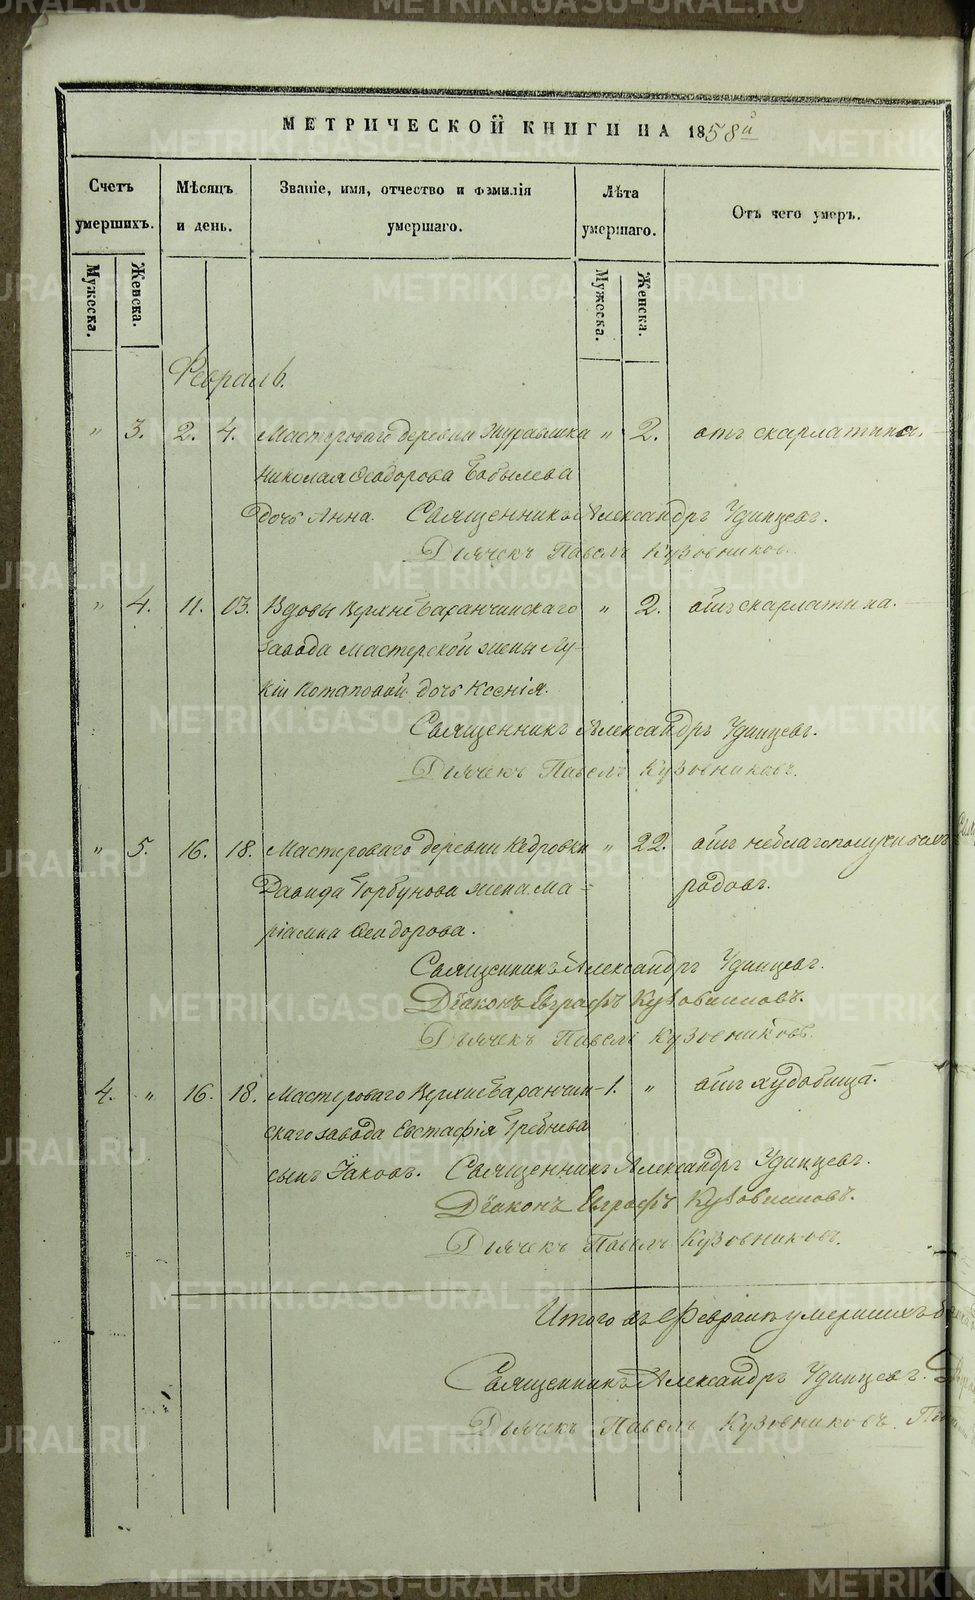 МЕТРИЧЕСКОЙ КНИГИ НА 1858й
Счетъ умершихъ.
Мѣсяцъ и день.
Званіе, имя, отчество и фамилія умершаго.
Лѣта умершаго.
Отъ чего умеръ.
Мужеска.
Женска.
Мужеска.
Женска.
Февраль.
" 3. 2. 4. Мастероваго деревни Журавлика " 2. отъ скарлатина.
Николая Ѳеодорова Бобылева
дочь Анна. Священникъ Александръ Удинцевъ.
Дьячекъ Павелъ Кузовниковъ.
" 4. 11. 13. Вдовы Верхнебаранчинскаго " 2. отъ скарлатина.
завода мастерской жены Лу-
кіи Потаповой дочь Ксенія.
Священникъ Александръ Удинцевъ.
Дьячекъ Павелъ Кузовниковъ.
" 5. 16. 18. Мастероваго деревни Кедровки " 22. отъ неблагополучныхъ
Давида Горбунова жена Ма=
ріамна Ѳеодорова. родовъ.
Священникъ Александръ Удинцевъ.
Діаконъ Евграфъ
Дьячекъ Павелъ Кузовниковъ.
4. " 16. 18. Мастероваго Верхнебаранчин- 1. " отъ худобища.
скаго завода Евстафія Гребнева
сынъ Іаковъ. Священникъ Александръ Удинцевъ.
Діаконъ Евграфъ
Дьячекъ Павелъ Кузовниковъ.
Итого въ Февралѣ умершихъ
Священникъ Александръ Удинцевъ.
Дьячекъ Павелъ Кузовниковъ.
METRIKI.GASO-URAL.RU